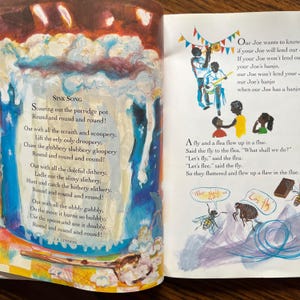 SINK SONG
Scouring out the porridge pot
Round and round and round!
Out with all the scraith and scoopery,
Lift the eely ooly droopery,
Chase the glubbery slubbery gloopery
Round and round and round!
Out with all the doleful dithery,
Ladle out the slimy slithery,
Hunt and catch the hithery thithery,
Round and round and round!
Out with all the obbly gubbly,
On the stove it burns so bubbly,
Use the spoon and use it doubly,
Round and round and round!
Our Joe wants to know
if your Joe will lend our
If your Joe won't lend our
your Joe's banjo,
our Joe won't lend your
our Joe's banjo
when our Joe has a banj
A fly and a flea flew up in a flue.
Said the fly to the flea, "What shall we do?"
"Let's fly," said the flea.
"Let's flee," said the fly.
So they fluttered and flew up a flaw in the flue.